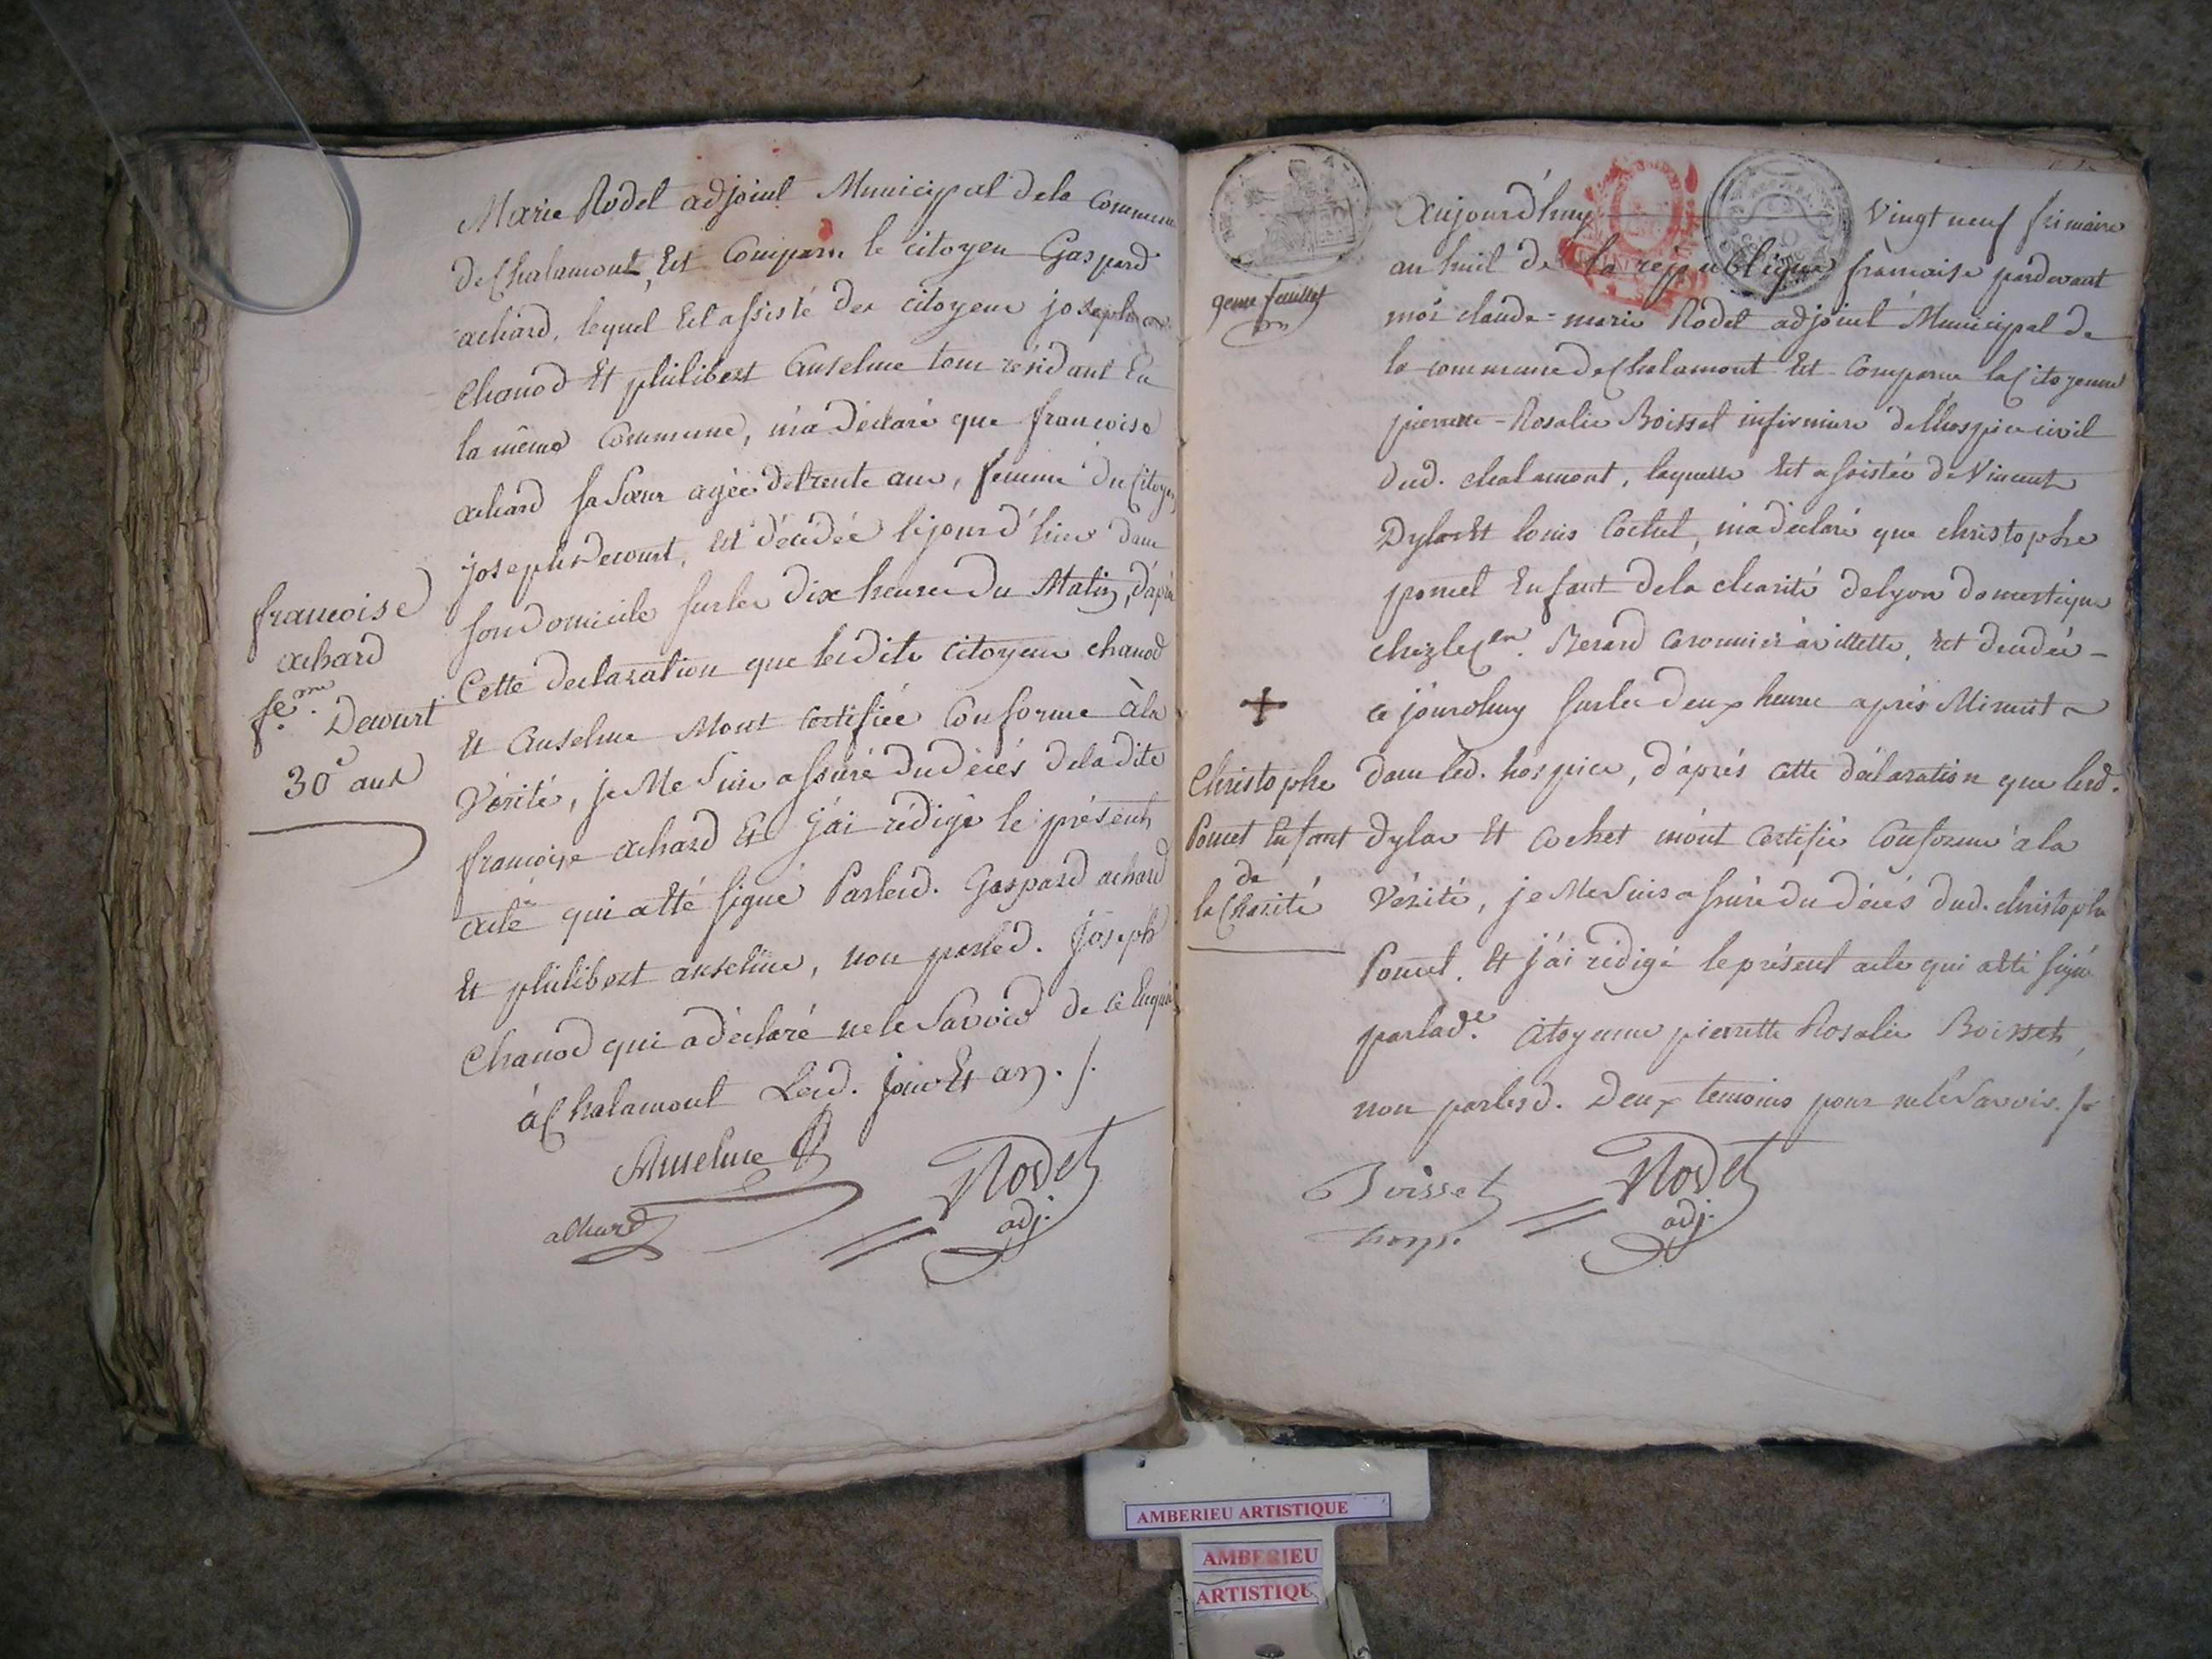 Marie Rodet adjoint Municipal dela Commune
de Chalamont, Est Comparu le citoyen Gaspard
achard, lequel Est assisté des citoyens joseph
Chanod Et philibert Anselme tous résidant En
la même Commune, m'a déclaré que francoise
achard sa Sœur agée de trente ans, femme du Citoyen
joseph Decourt, Est décédée le jour d'hier dans
son domicile sur les dix heures du Matin, d'après
Cette declaration que lesdits citoyens chanod
Et Anselme M'ont certifiée Conforme à la
Vérité, je Me Suis assuré du décès de ladite
francoise achard Et j'ai rédigé le présent
acte qui a été signé Par led. Gaspard achard
Et philibert anselme, non par led. Joseph
Chanod qui a déclaré ne le Savoir de ce Enquis
à Chalamont Lesd. jour Et an ./.
francoise
achard
fe.me Decourt
30 ans
Anselme
achard
Rodet
adj.
9eme feuillet
Aujourd'huy Vingt neuf frimaire
an huit de la république francaise pardevant
moi claude-marie Rodet adjoint Municipal de
la commune de Chalamont Est Comparue la Citoyenne
pierrette-Rosalie Boisset infirmiere de l'hospice civil
dud. chalamont, laquelle Est assistée de Vincent
Dylas Et louis Cochet, m'a déclaré que christophe
poncet Enfant de la charité de lyon domestique
chez le Cen. Berard à villette, Est décédé -
ce jourd'huy sur les deux heures après Minuit
dans led. hospice, d'après cette déclaration que lesd.
dylas Et cochet m'ont certifié Conforme à la
Vérité, je Me Suis assuré du décès dud. christophe
Poncet. Et j'ai rédigé le présent acte qui a été signé
par lade. Citoyenne pierrette Rosalie Boisset,
non par lesd. Deux temoins pour ne le Savoir ./.
Christophe
Poncet Enfant
de
la Charité
Boisset
hosp.
Rodet
adj.
AMBERIEU ARTISTIQUE
AMBERIEU
ARTISTIQU